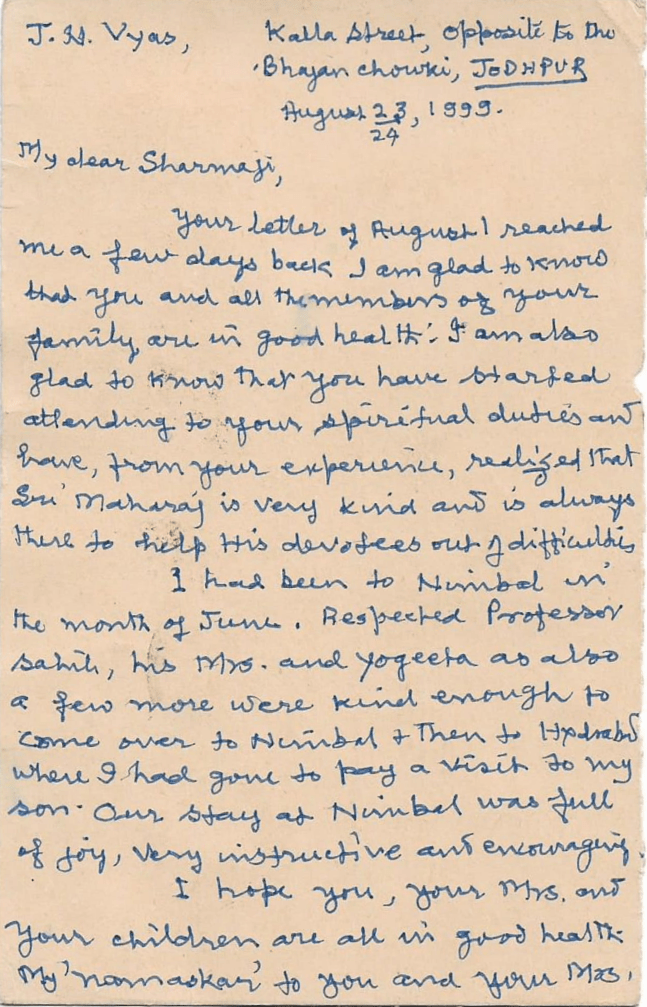 J. H. Vyas, Kalla Street, opposite to the
Bhajan chowki, JODHPUR
August 23, 1999.
24
My dear Sharmaji,
Your letter of August 1 reached
me a few days back. I am glad to know
that you and all the members of your
family, are in good health. I am also
glad to know that you have started
attending to your spiritual duties and
have, from your experience, realized that
Sri Maharaj is very kind and is always
there to help His devotees out of difficulties
I had been to Nimbal in
the month of June. Respected Professor
Sahib, his Mrs. and Yogeeta as also
a few more were kind enough to
come over to Nimbal & then to Hydrabd
where I had gone to pay a visit to my
son. Our stay at Nimbal was full
of joy, very instructive and encouraging.
I hope you, your Mrs. and
your children are all in good health.
My 'namaskar' to you and your Mrs.